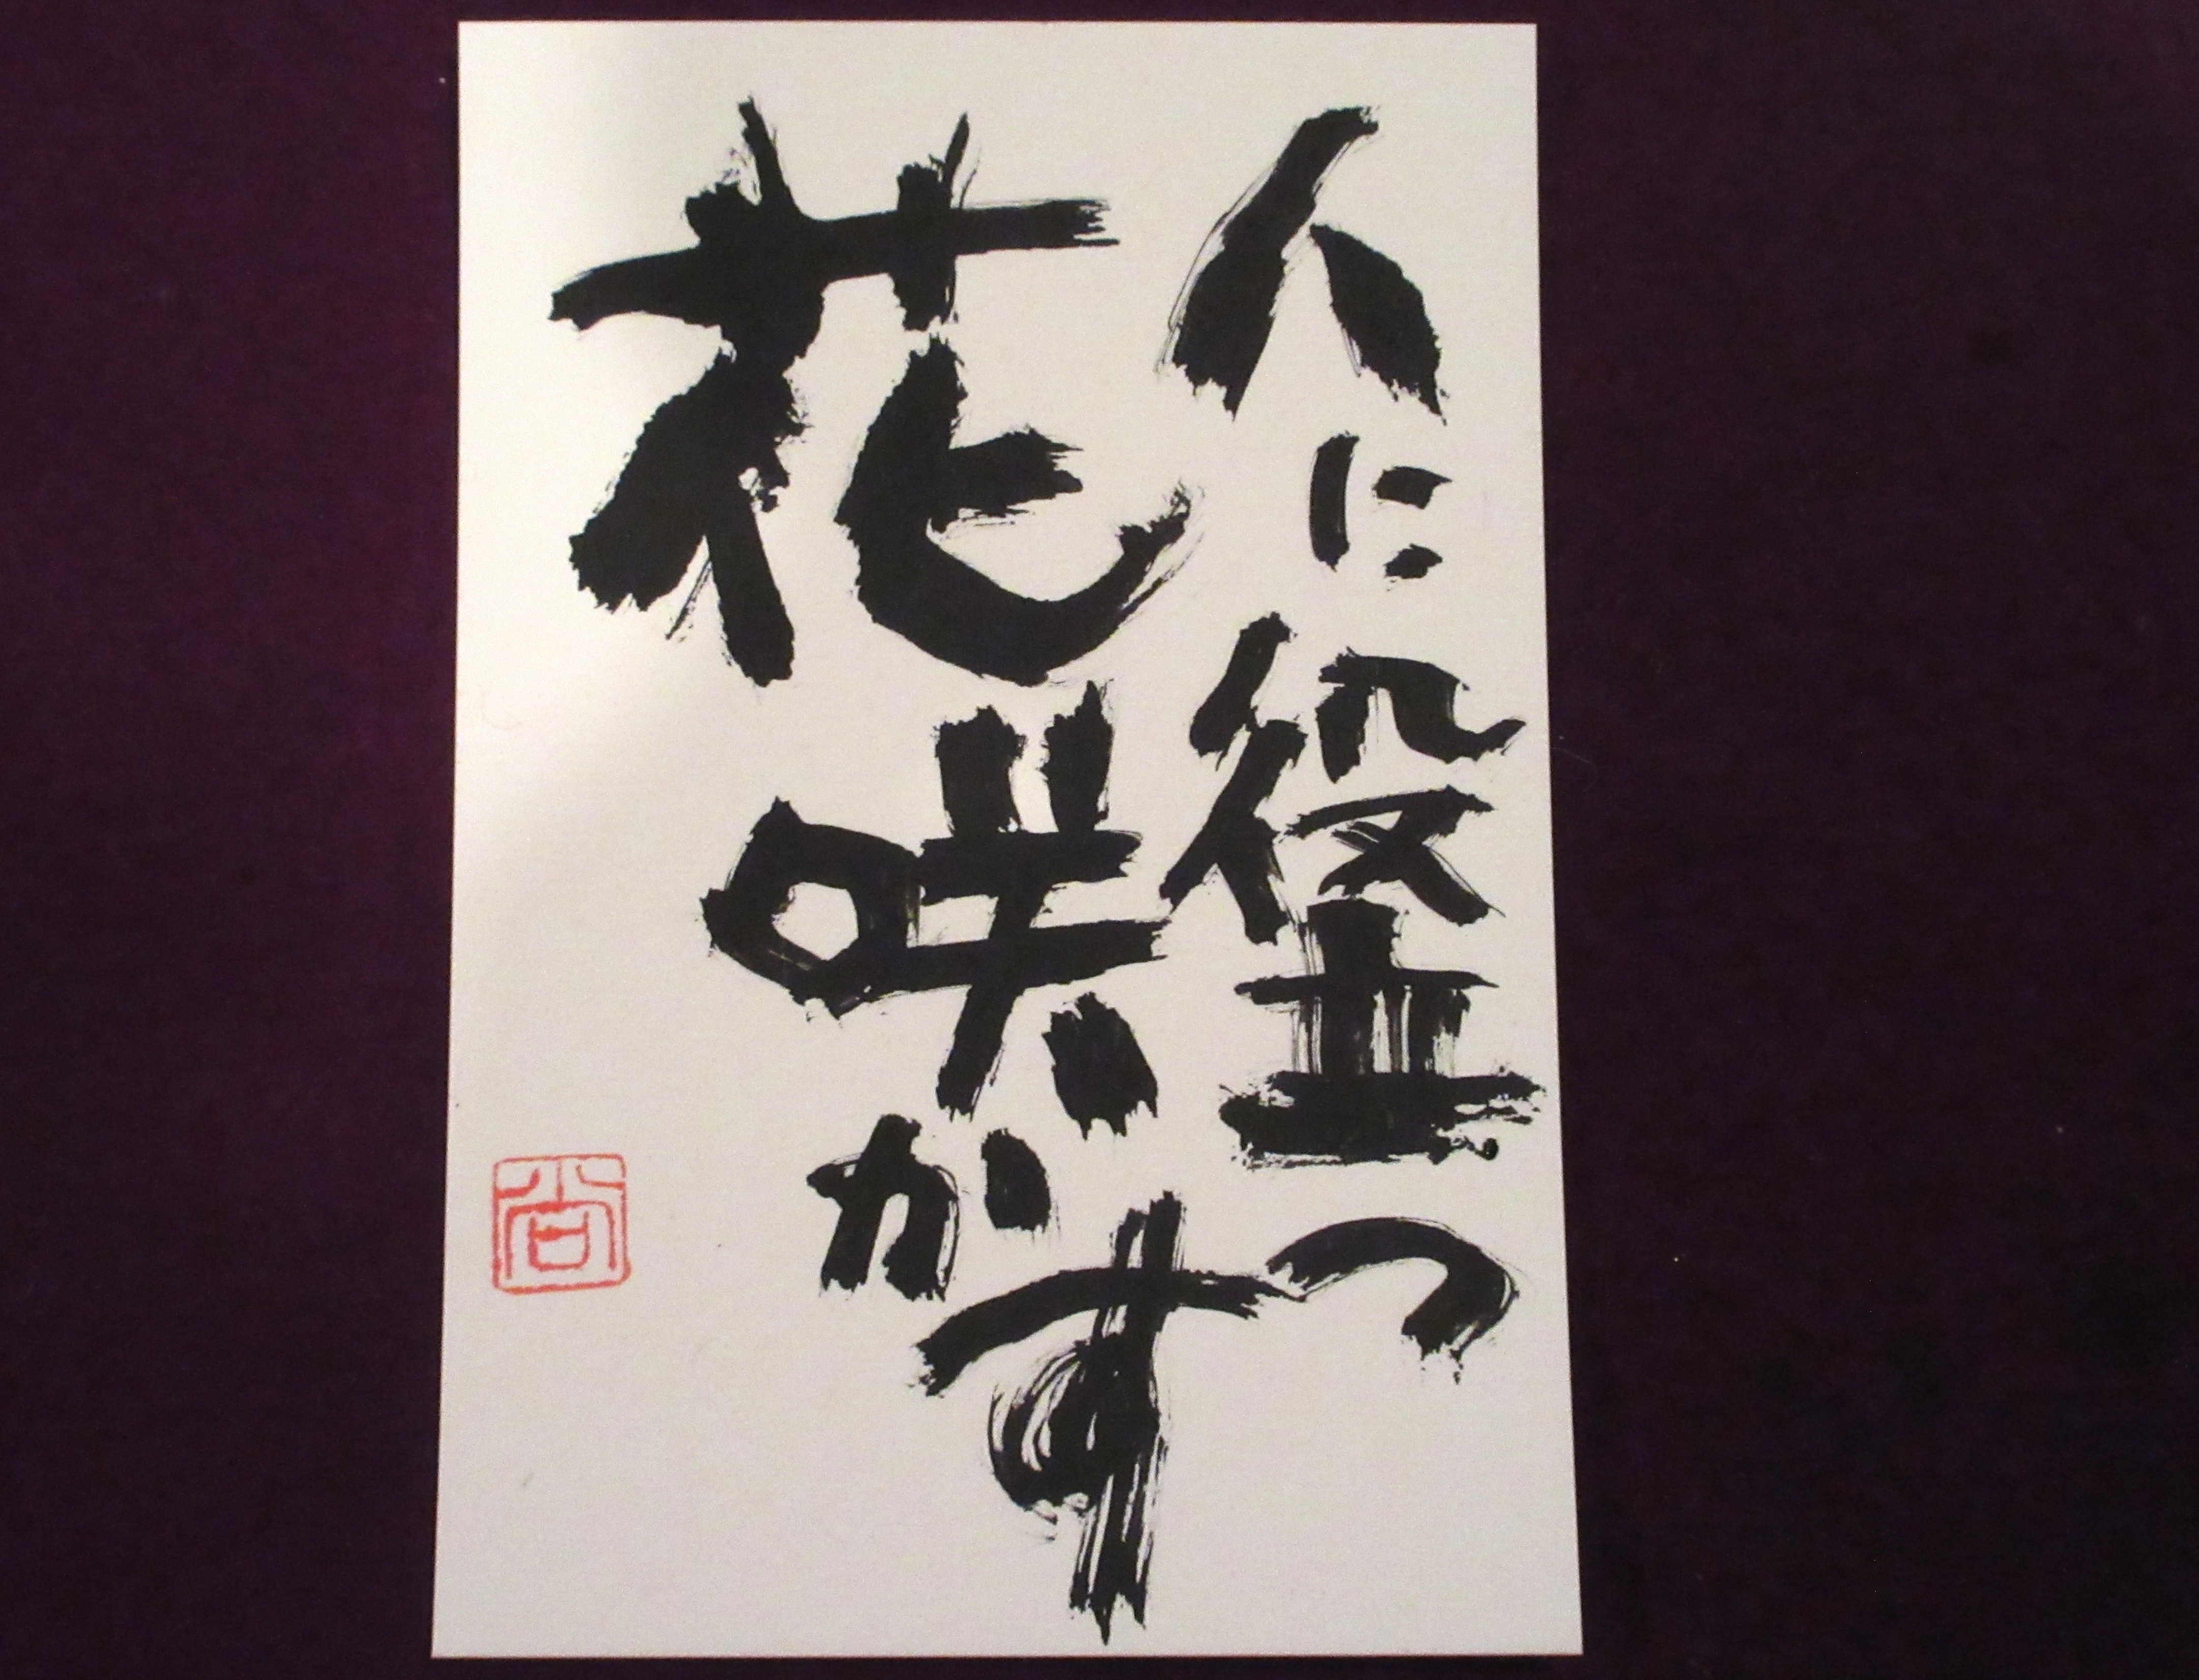 人に役立つ
花咲かす
尚